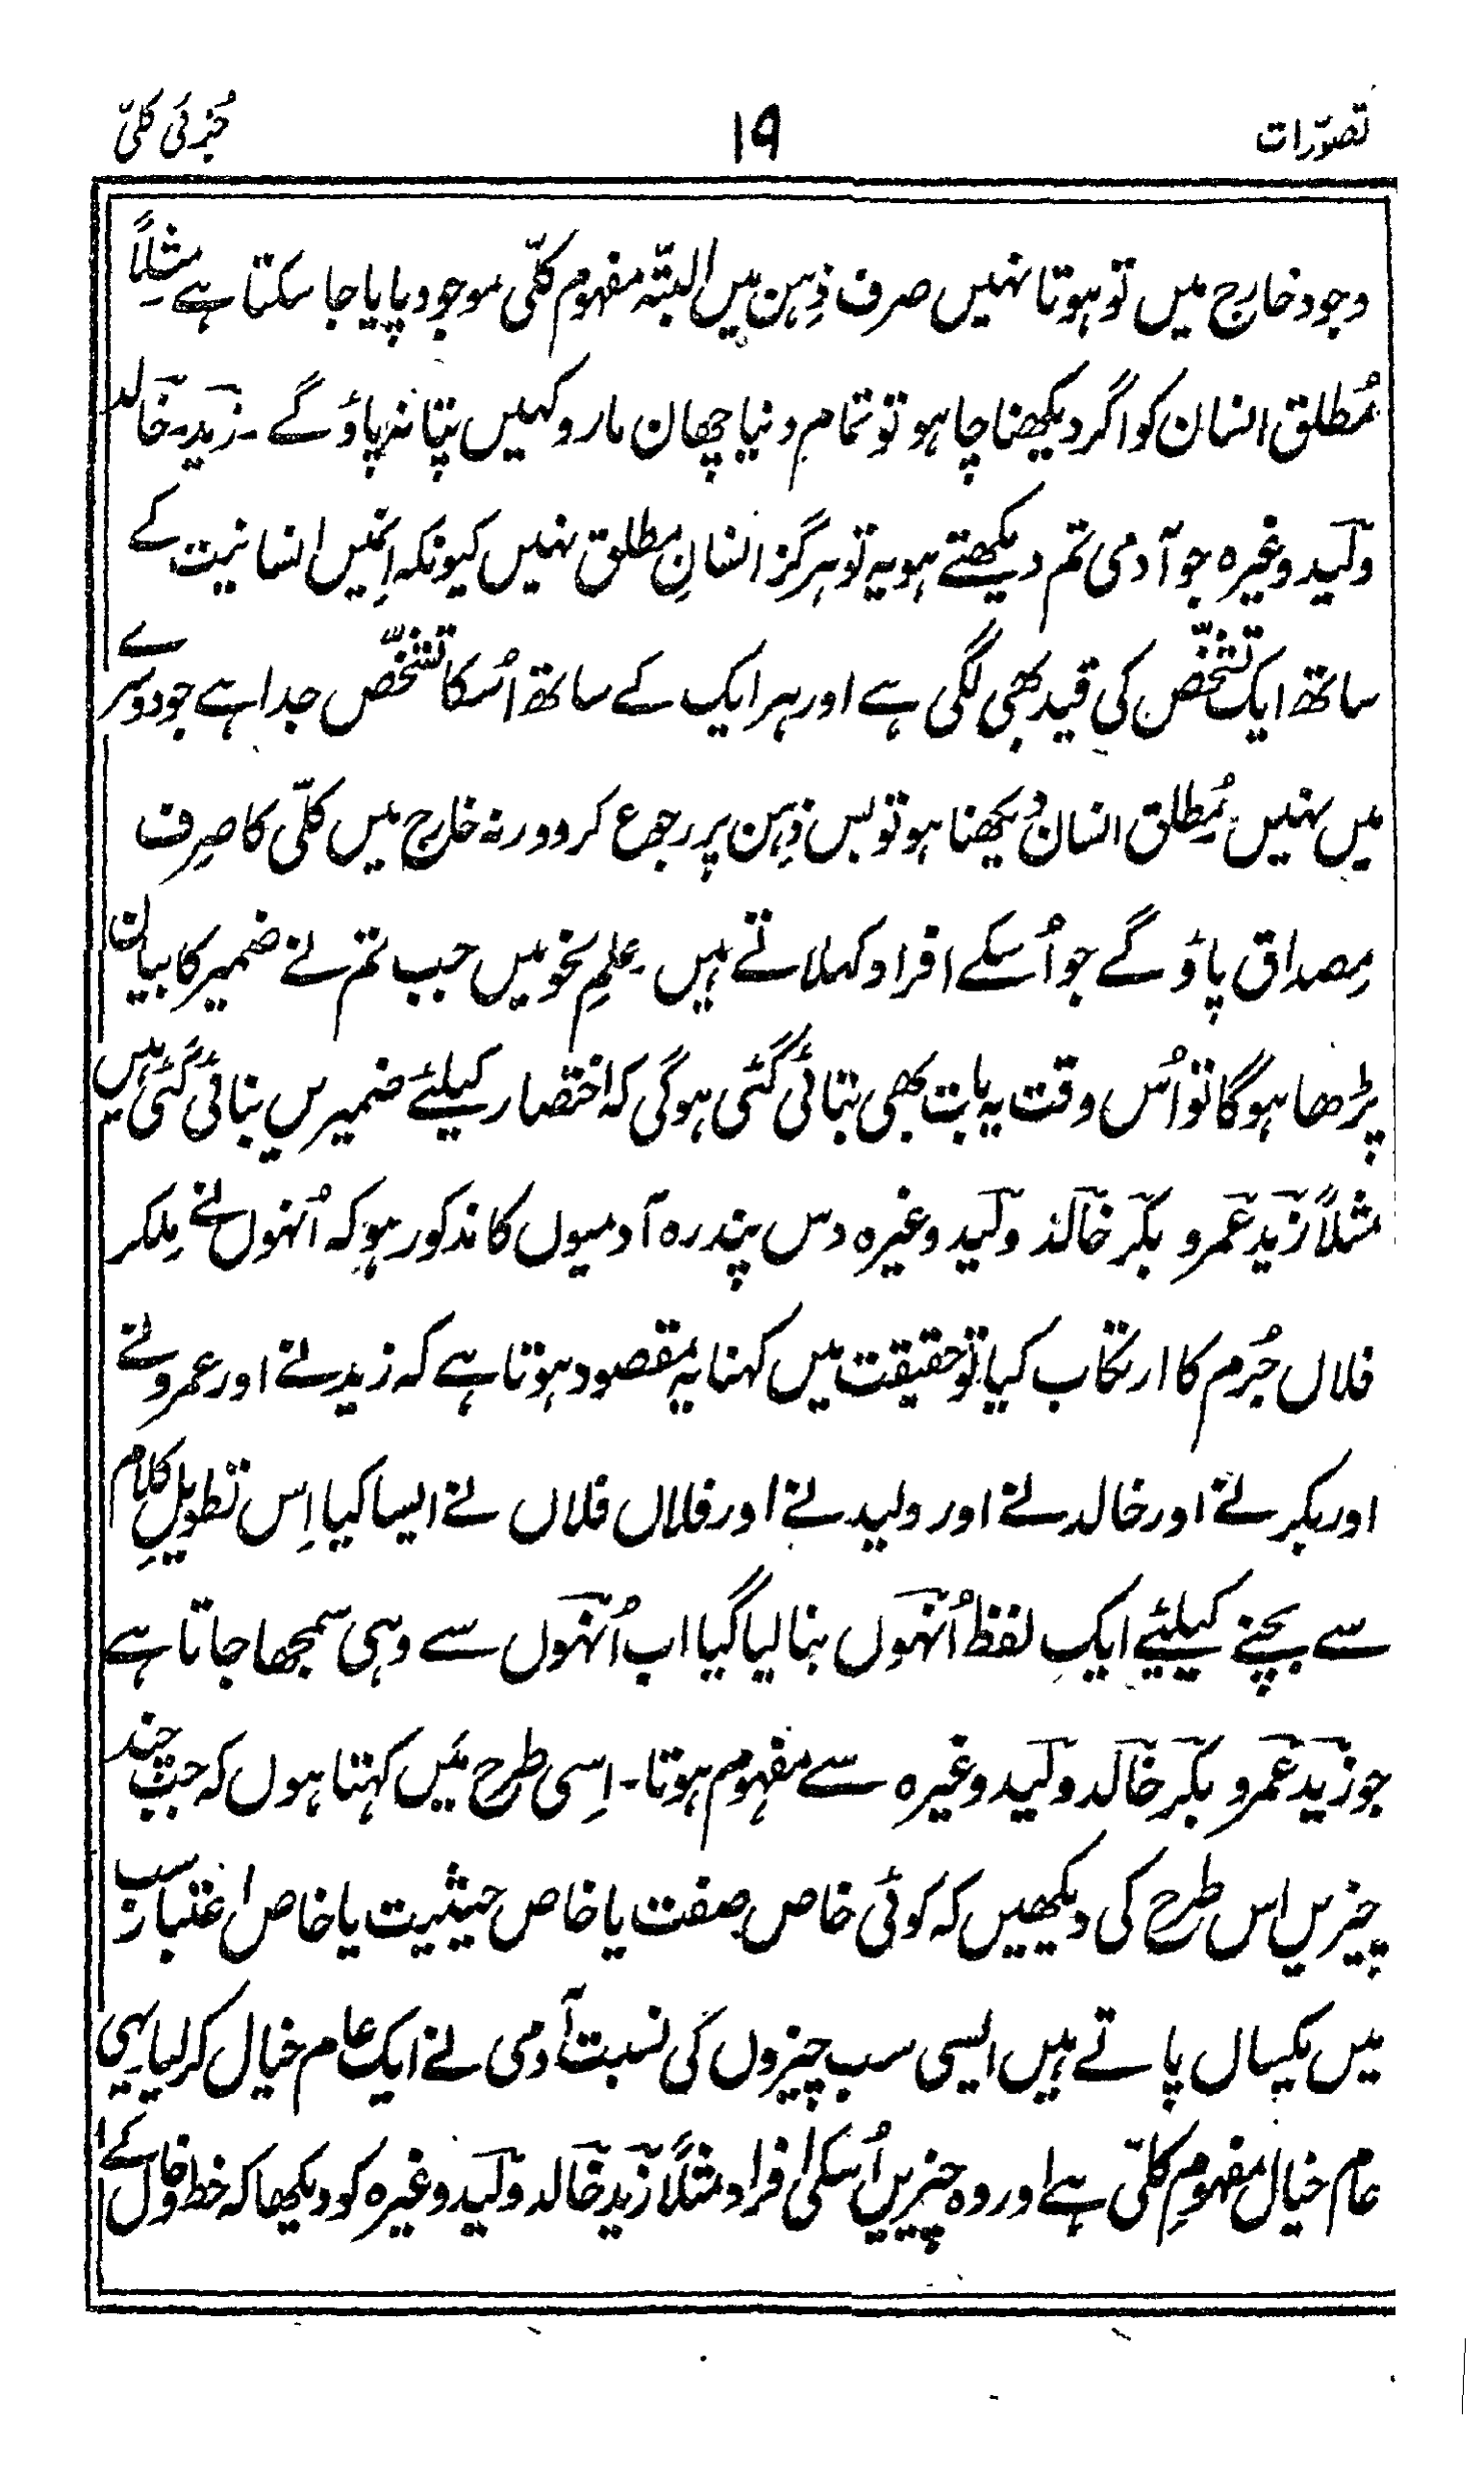 تصوّرات ۱۹ جُزئی کلّی
وجود خارج میں تو ہوتا نہیں صرف ذِہن میں البتّہ مفہوم کلّی موجود پایا جا سکتا ہے مثلاً
مُطلق انسان کو اگر دیکھنا چاہو تو تمام دنیا چھان مارو کہیں پتا نہ پاؤ گے ۔ زید ۔ خالد
ولید وغیرہ جو آدمی تم دیکھتے ہو یہ تو ہرگز انسانِ مطلق نہیں کیونکہ اِنمیں انسانیت کے
ساتھ ایک تشخّص کی قید بھی لگی ہے اور ہر ایک کے ساتھ اُسکا تشخّص جدا ہے جو دوسرے
میں نہیں ۔ مُطلق انسان دیکھنا ہو تو بس ذِہن پر رجوع کرو ورنہ خارج میں کلّی کا صِرف
مِصداق پاؤ گے جو اُسکے افراد کہلاتے ہیں ۔ علمِ نحو میں جب تم نے ضمیر کا بیان
پڑھا ہوگا تو اُس وقت یہ بات بھی بتائی گئی ہوگی کہ اختصار کیلئے ضمیریں بنائی گئی ہیں
مثلاً زید عمرو بکر خالد ولید وغیرہ دس پندرہ آدمیوں کا مذکور ہو کہ اُنہوں نے مِلکر
فلاں جُرم کا ارتکاب کیا تو حقیقت میں کہنا یہ مقصود ہوتا ہے کہ زید نے اور عمرو نے
اور بکر نے اور خالد نے اور ولید نے اور فلاں فلاں نے ایسا کیا اِس تطویلِ کلام
سے بچنے کیلئے ایک لفظ اُنہوں بنا لیا گیا اب اُنہوں سے وہی سمجھا جاتا ہے
جو زید عمرو بکر خالد ولید وغیرہ سے مفہوم ہوتا ۔ اِسی طرح مَیں کہتا ہوں کہ جب چند
چیزیں اس طرح کی دیکھیں کہ کوئی خاص صِفت یا خاص حیثیت یا خاص اعتبار سب
میں یکساں پاتے ہیں ایسی سب چیزوں کی نسبت آدمی نے ایک عام خیال کر لیا یہی
عام خیال مفہومِ کلّی ہے اور وہ چیزیں اُسکی افراد مثلاً زید خالد ولید وغیرہ کو دیکھا کہ خط و خال کے